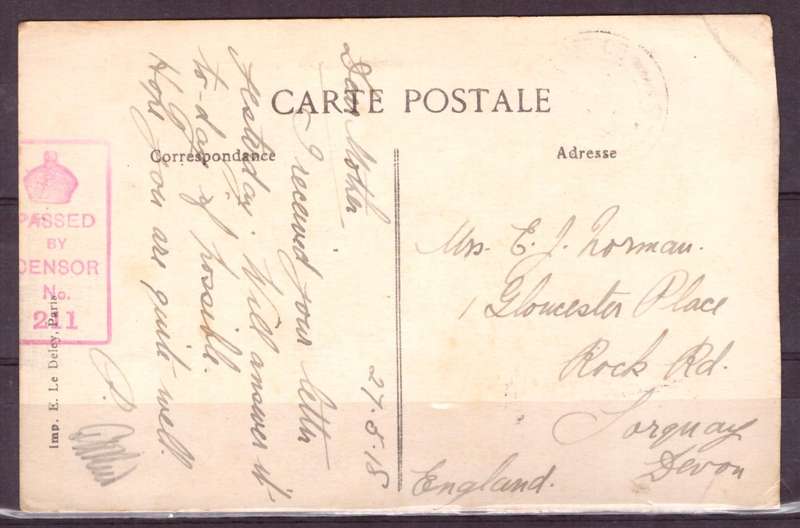 CARTE POSTALE
Correspondance
Adresse
27.5.18
Dear Mother
I received your letter
yesterday. Will answer it
to-day if possible.
Hope you are quite well.
P.
Mrs. E. J. Norman.
1 Gloucester Place
Rock Rd.
Torquay
Devon
England.
PASSED
BY
CENSOR
No.
211
Imp. E. Le Deley, Paris